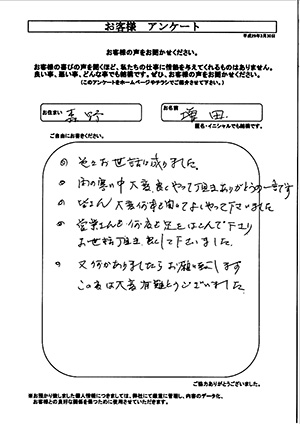 お客様 アンケート
平成29年3月30日
お客様の声をお聞かせください。
お客様の喜びの声を聞くほど、私たちの仕事に情熱を与えてくれるものはありません。
良い事、悪い事、どんな事でも結構です。ぜひ、お客様の声をお聞かせください。
(このアンケートをホームページやチラシでご紹介させて下さい。)
お住まい
お名前 増田
匿名・イニシャルでも結構です。
ご自由にお書きください。
お世話に成りました。
の寒い中大変良くやって頂きありがとうの一言です
皆さん 大変何事も よくやって下さいました
営業さんも何度も足をはこんで下さり
お世話頂き 良くして下さいました。
又何かありましたらお願い致します
この度は大変有難とうございました。
ご協力ありがとうございました。
※お預かり致しました個人情報につきましては、弊社にて厳重に管理し、内容をデータ化、
お客様との良好な関係を築くために使用させていただきます。